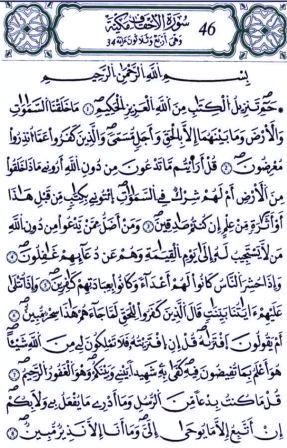 سورة الأحقاف مكية 46
وهى أربع وثلاثون آية 34
بسم الله الرحمن الرحيم
حم تنزيل الكتاب من الله العزيز الحكيم ما خلقنا السموات
والأرض وما بينهما إلا بالحق وأجل مسمى والذين كفروا عما أنذروا
معرضون قل أرأيتم ما تدعون من دون الله أرونى ماذا خلقوا
من الأرض أم لهم شرك فى السموات ائتونى بكتاب من قبل هذا
أو أثارة من علم إن كنتم صادقين ومن أضل ممن يدعوا من دون الله
من لا يستجيب له إلى يوم القيمة وهم عن دعائهم غافلون
وإذا حشر الناس كانوا لهم أعداء وكانوا بعبادتهم كافرين وإذا تتلى
عليهم آياتنا بينات قال الذين كفروا للحق لما جاءهم هذا سحر مبين
أم يقولون افتريه قل إن افتريته فلا تملكون لى من الله شيئا
هو أعلم بما تفيضون فيه كفى به شهيدا بينى وبينكم وهو الغفور الرحيم
قل ما كنت بدعا من الرسل وما أدرى ما يفعل بى ولا بكم
إن أتبع إلا ما يوحى إلى وما أنا إلا نذير مبين